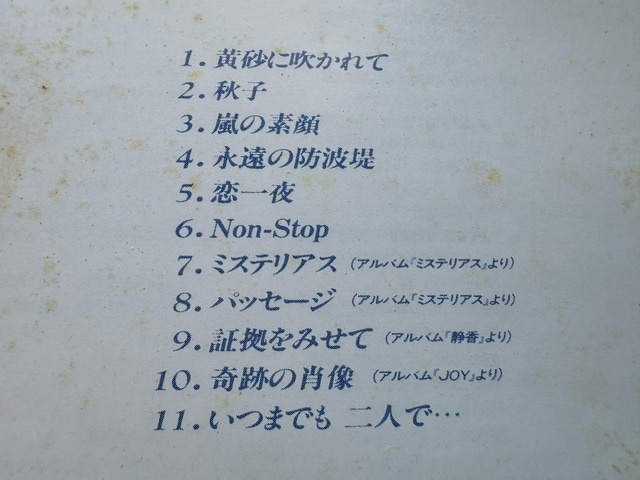 1. 黄砂に吹かれて
2. 秋子
3. 嵐の素顔
4. 永遠の防波堤
5. 恋一夜
6. Non-Stop
7. ミステリアス (アルバム『ミステリアス』より)
8. パッセージ (アルバム『ミステリアス』より)
9. 証拠をみせて (アルバム『静香』より)
10. 奇跡の肖像 (アルバム『JOY』より)
11. いつまでも 二人で…